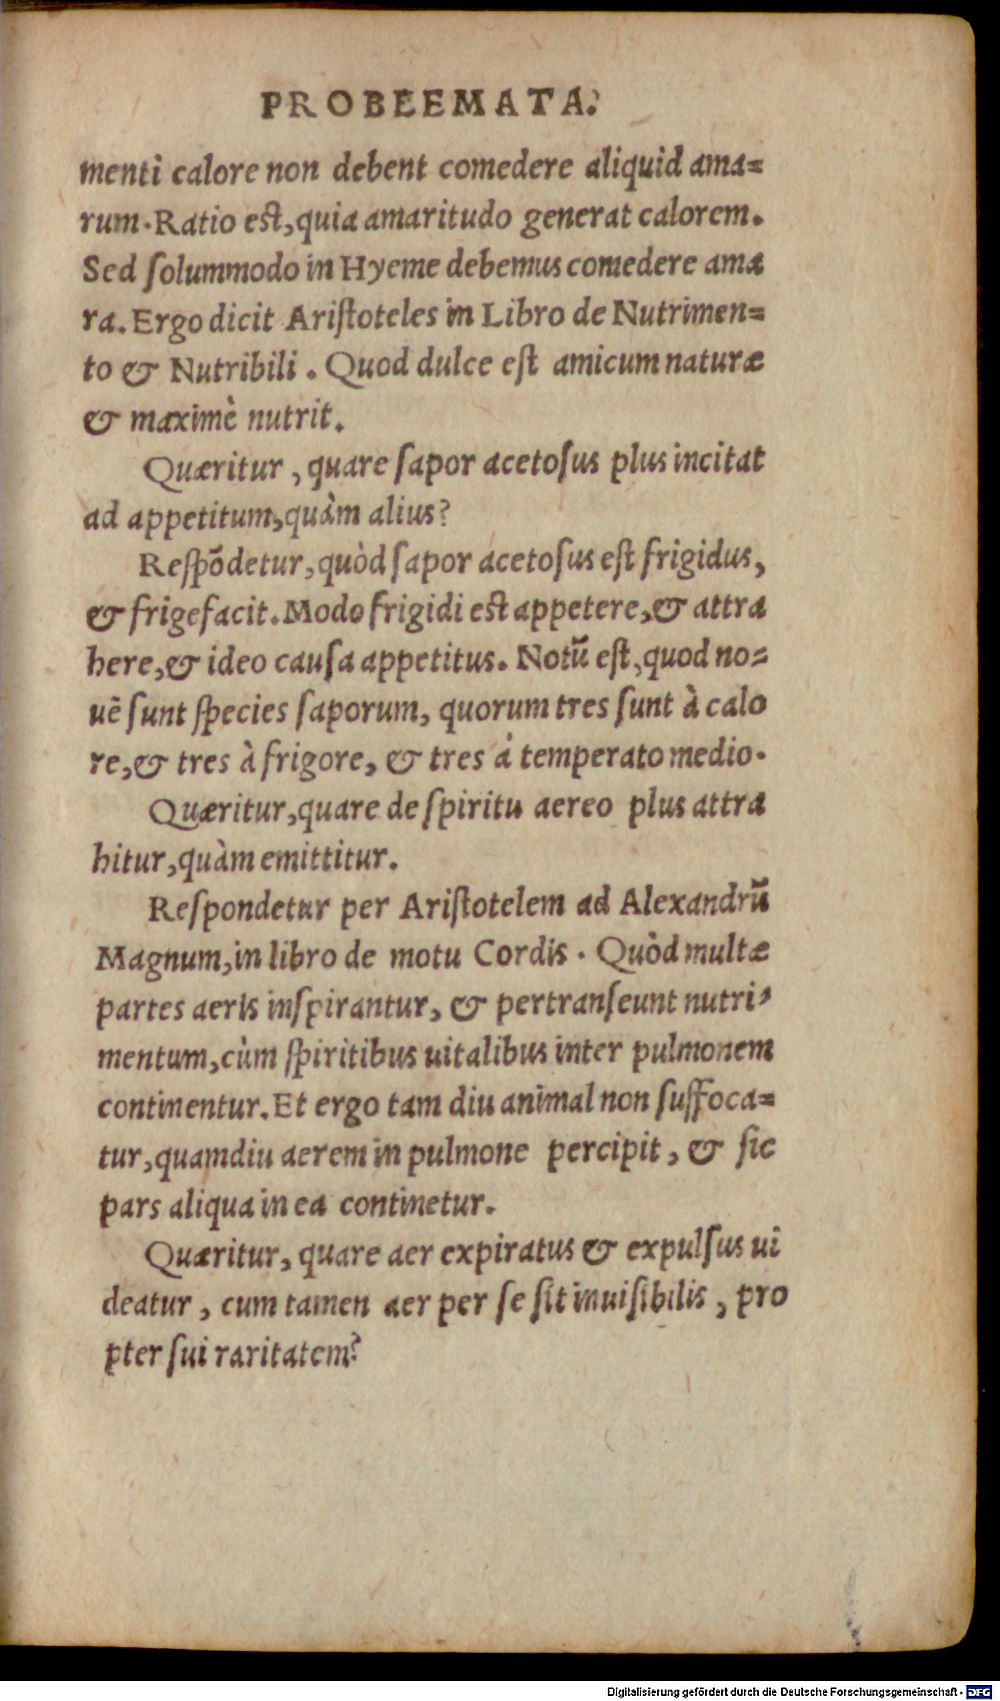 PROBLEMATA.
menti calore non debent comedere aliquid ama=
rum. Ratio est, quia amaritudo generat calorem.
Sed ſolummodo in Hyeme debemus comedere ama
ra. Ergo dicit Ariſtoteles in Libro de Nutrimen=
to & Nutribili. Quod dulce eſt amicum naturæ
& maximè nutrit.
Quæritur, quare ſapor acetoſus plus incitat
ad appetitum, quàm alius?
Reſpõdetur, quòd ſapor acetoſus eſt frigidus,
& frigefacit. Modo frigidi est appetere, & attra
here, & ideo cauſa appetitus. Notũ eſt, quod no=
uẽ ſunt ſpecies ſaporum, quorum tres ſunt à calo
re, & tres à frigore, & tres à temperato medio.
Quæritur, quare de ſpiritu aereo plus attra
hitur, quàm emittitur.
Reſpondetur per Ariſtotelem ad Alexandrũ
Magnum, in libro de motu Cordis. Quòd multæ
partes aeris inſpirantur, & pertranſeunt nutri=
mentum, cùm ſpiritibus uitalibus inter pulmonem
continentur. Et ergo tam diu animal non ſuffoca=
tur, quamdiu aerem in pulmone percipit, & ſic
pars aliqua in ea continetur.
Quæritur, quare aer expiratus & expulſus ui
deatur, cum tamen aer per ſe ſit inuiſibilis, pro
pter ſui raritatem?
Digitalisierung gefördert durch die Deutsche Forschungsgemeinschaft - DFG